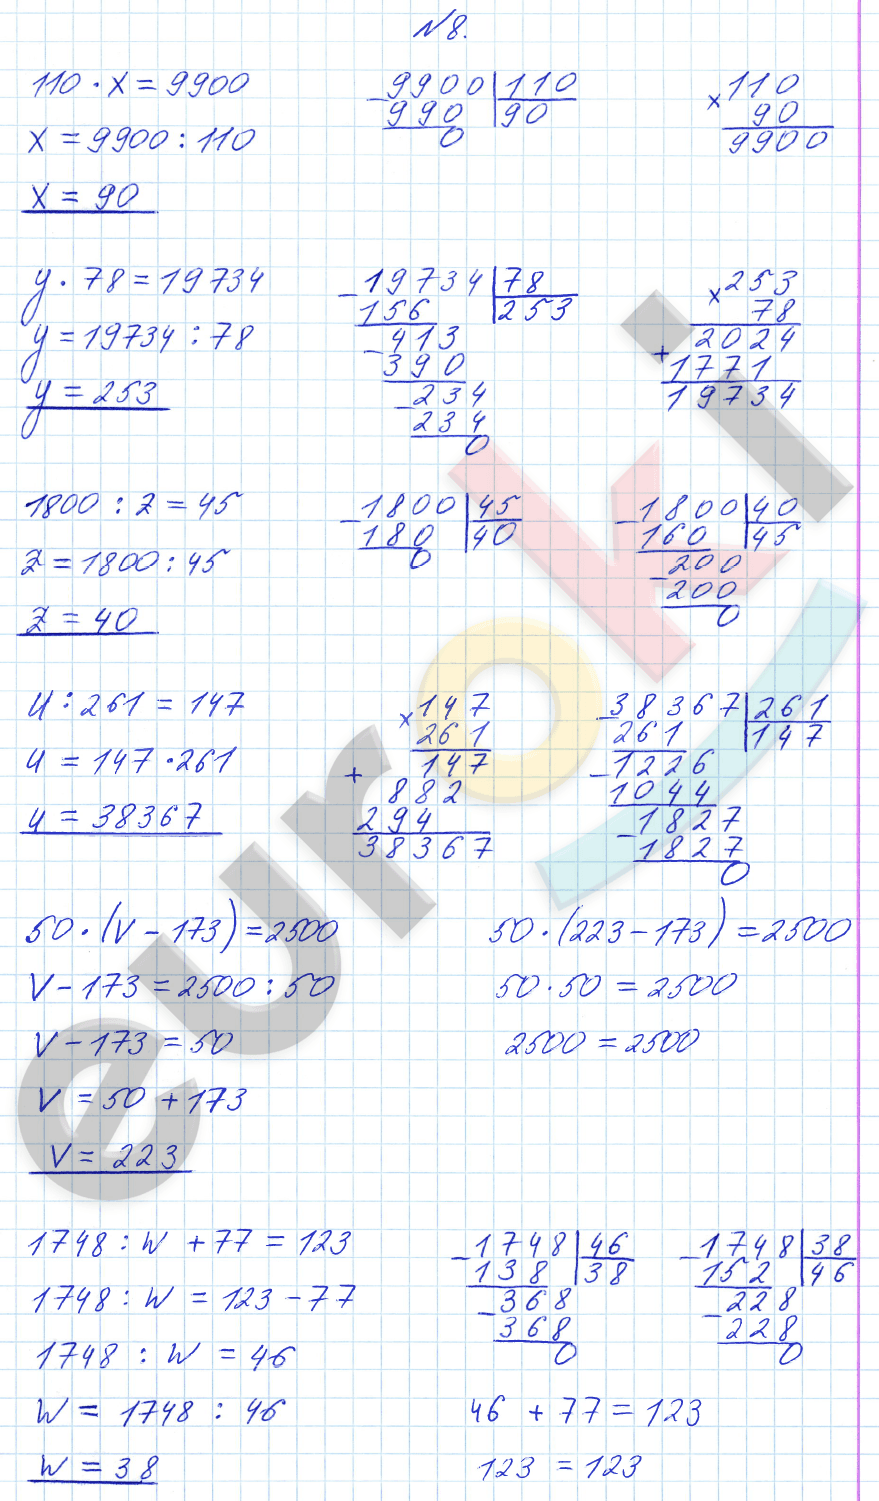 №8.
110 · x = 9900
x = 9900 : 110
x = 90
- 9900 | 110
990 | 90
0
× 110
90
9900
y · 78 = 19734
y = 19734 : 78
y = 253
- 19734 | 78
156 | 253
- 413
390
- 234
234
0
× 253
78
2024
+ 1771
19734
1800 : z = 45
z = 1800 : 45
z = 40
- 1800 | 45
180 | 40
0
- 1800 | 40
160 | 45
- 200
200
0
u : 261 = 147
u = 147 · 261
u = 38367
× 147
261
147
+ 882
294
38367
- 38367 | 261
261 | 147
- 1226
1044
- 1827
1827
0
50 · (v - 173) = 2500
v - 173 = 2500 : 50
v - 173 = 50
v = 50 + 173
v = 223
50 · (223 - 173) = 2500
50 · 50 = 2500
2500 = 2500
1748 : w + 77 = 123
1748 : w = 123 - 77
1748 : w = 46
w = 1748 : 46
w = 38
- 1748 | 46
138 | 38
- 368
368
0
- 1748 | 38
152 | 46
- 228
228
0
46 + 77 = 123
123 = 123
euroki